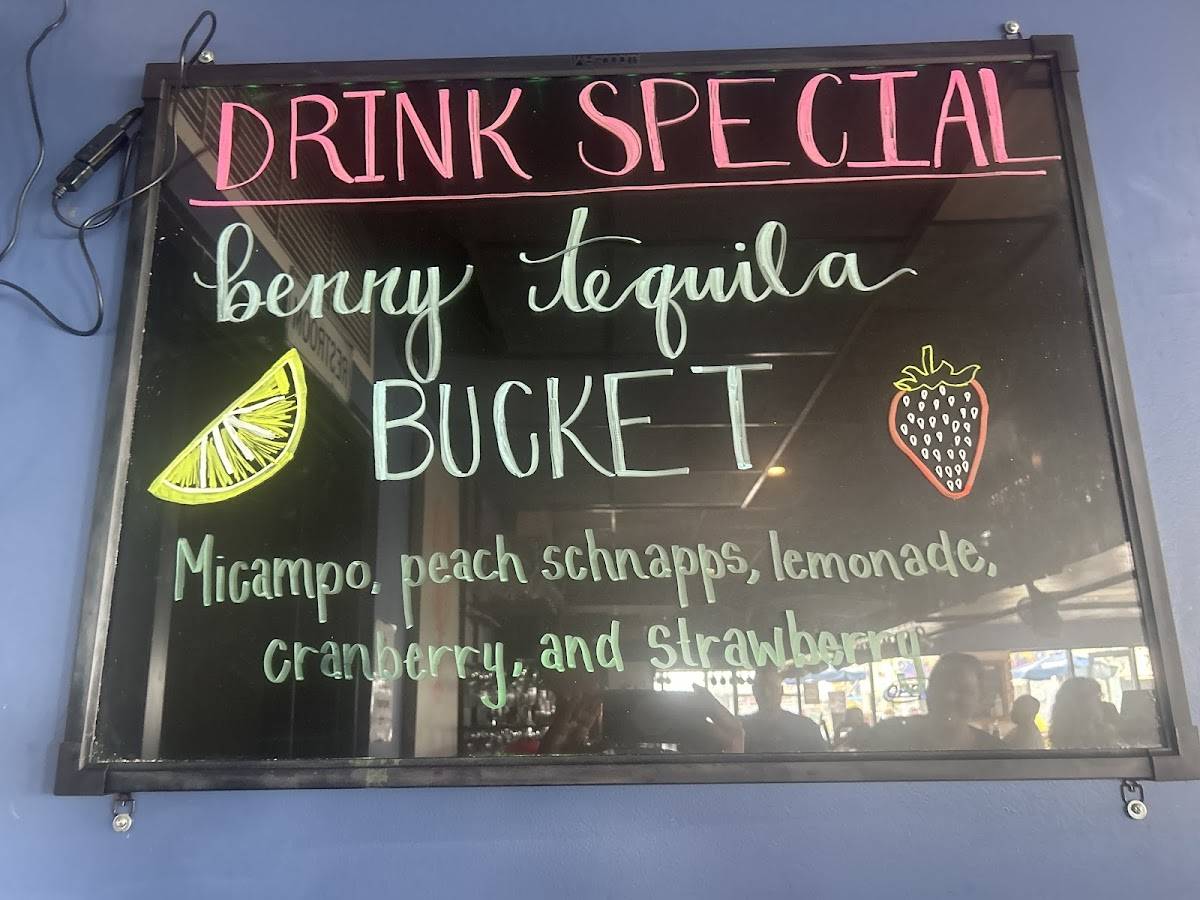 DRINK SPECIAL
berry tequila
BUCKET
Micampo, peach schnapps, lemonade,
cranberry, and strawberry
RESTROOM
OPEN